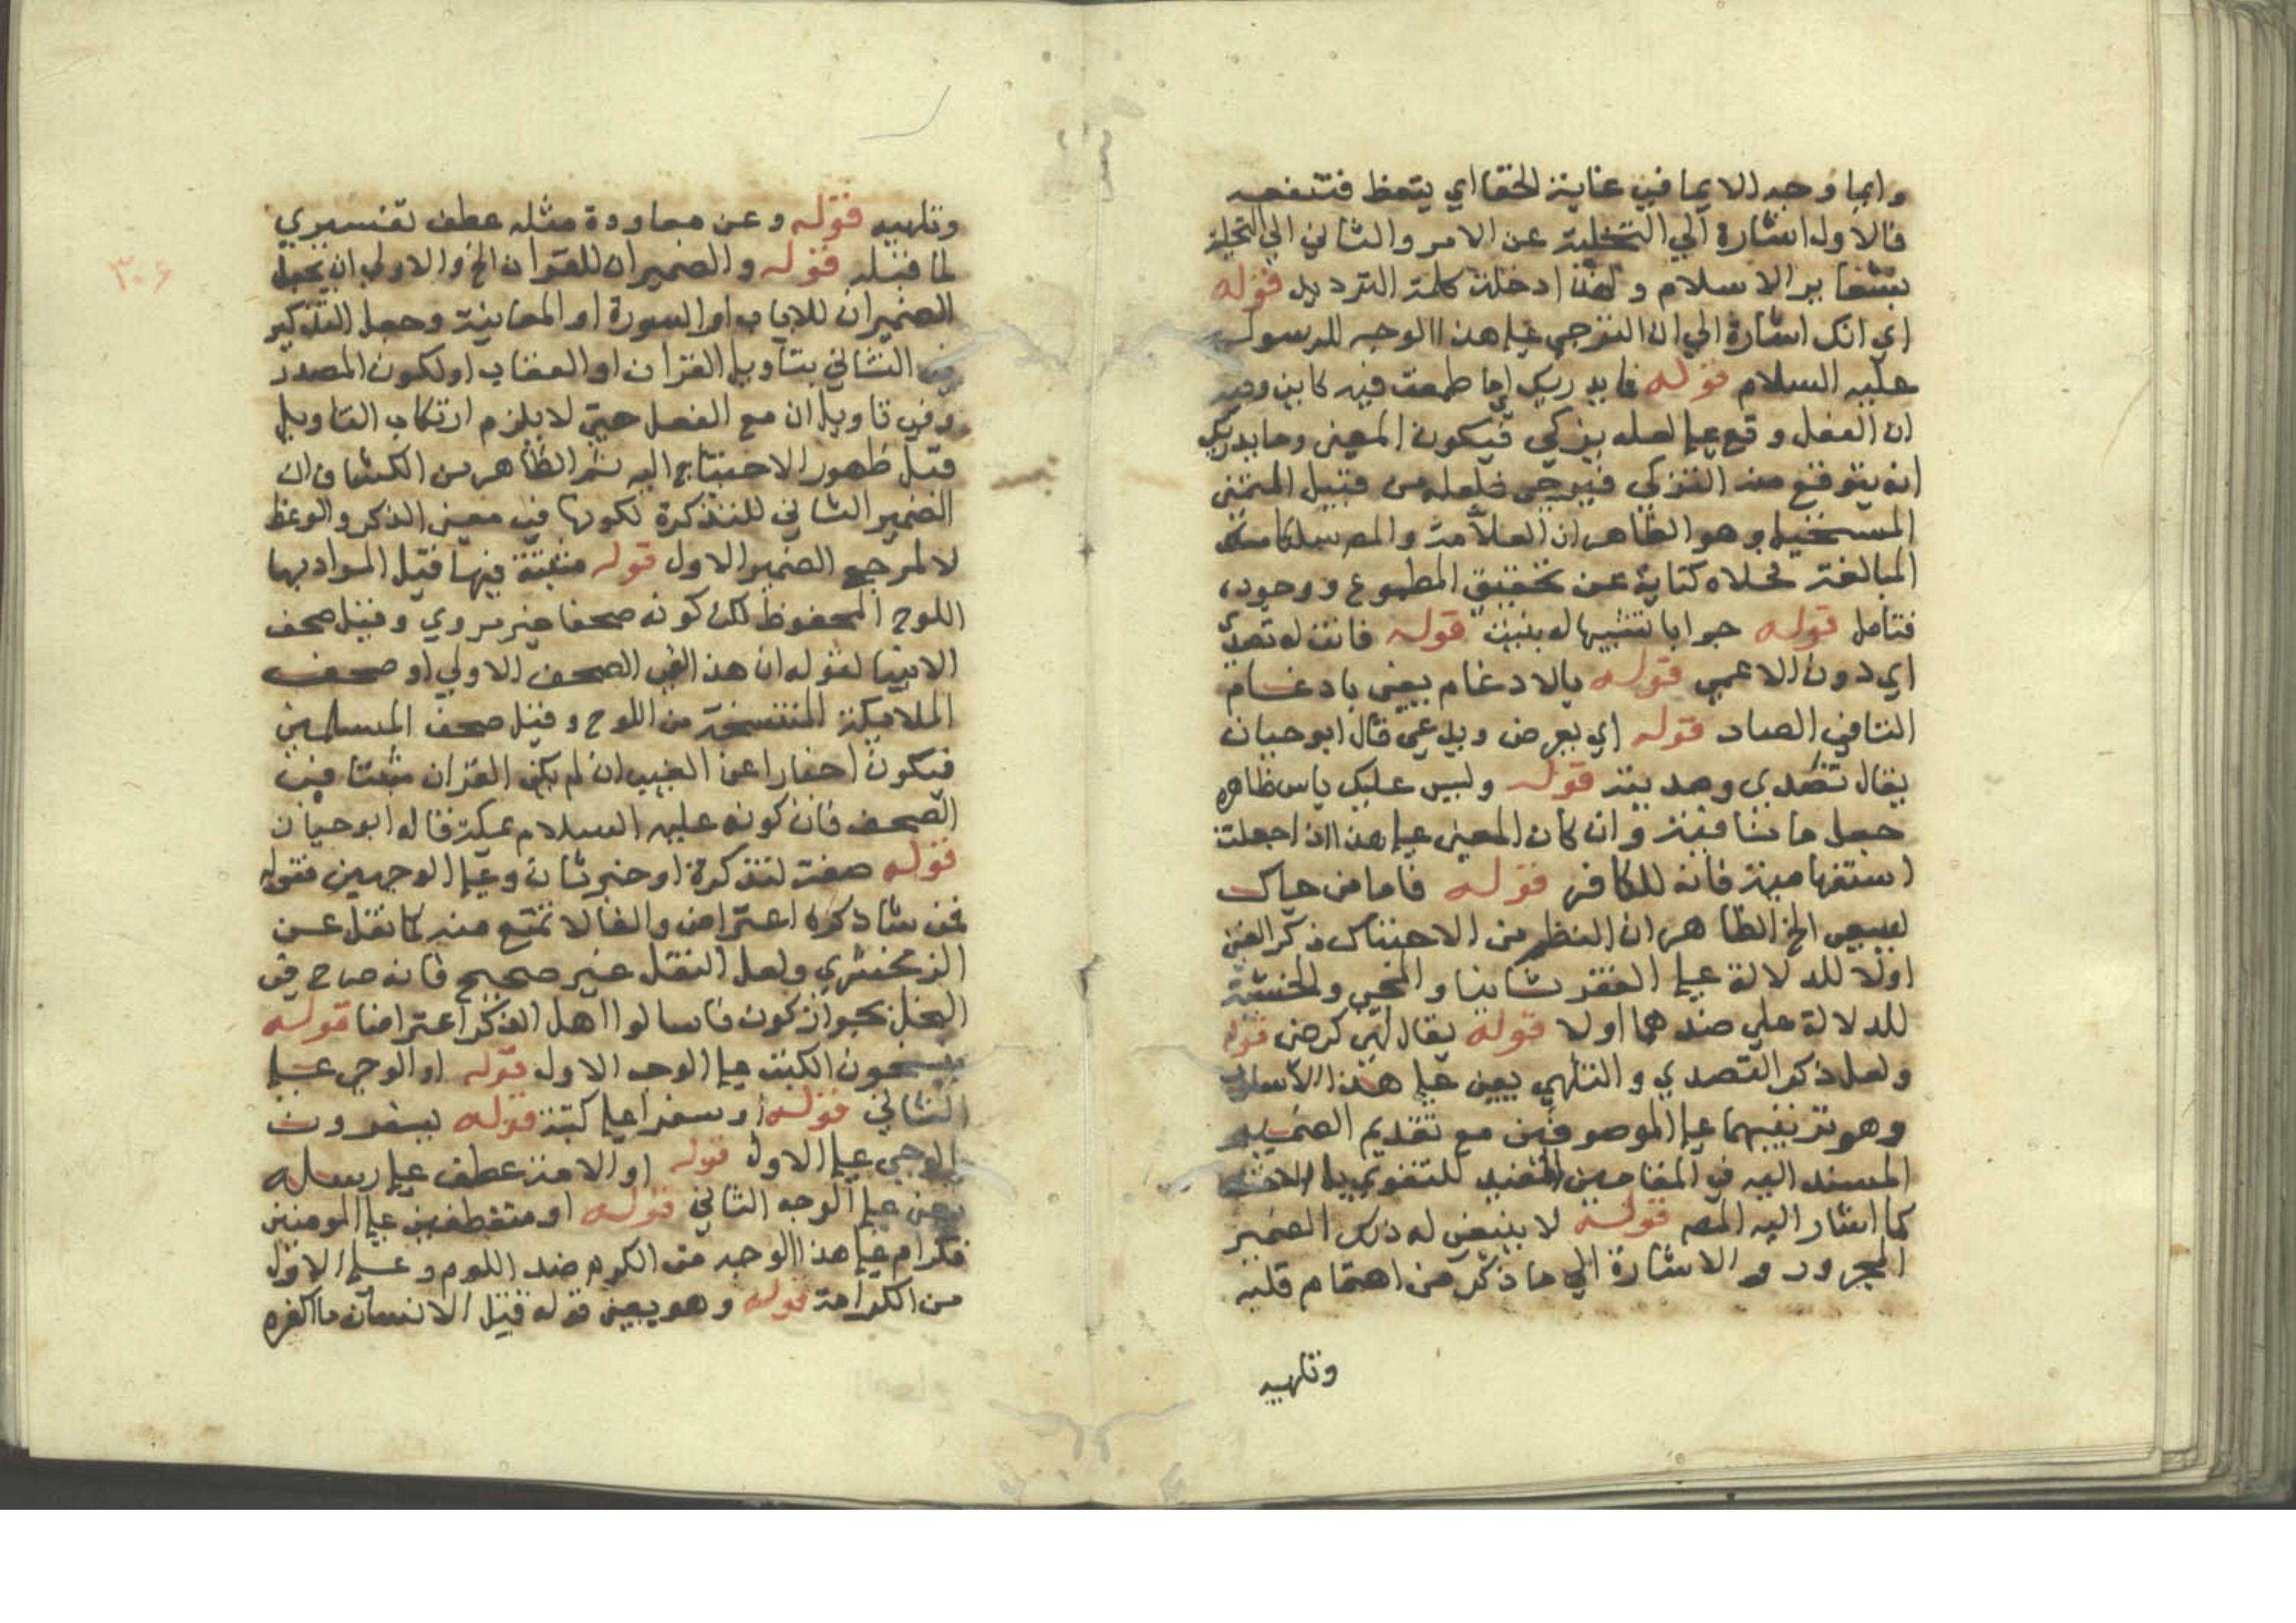 وايما وجه الايما في غاية الخفا اي يتعظ فتنفعه
فالاول اشارة الي التخلية عن الامر والثاني الي التحلية
بشعاير الاسلام ولهذا دخلت كلمة الترديد قوله
اي انك اشارة الي ان الترجي علي هذا الوجه للرسول
عليه السلام قوله فما يدريك ان ما طمعت فيه كاين
ان الفعل وقع علي لعله يزكي فيكون المعني وما يدريك
انه يتوقع منه التزكي فيرجي فلعله من قبيل المتمني
المستحيل وهو الظاهر ان العلامة والمص سلكا مسلك
المبالغة كتاية عن تحقيق المطموع ووجوده
فتامل قوله جوابا تشبيها له بليت قوله فانت له تصدي
اي دون الاعمي قوله بالادغام يعني بادغام
التا في الصاد قوله اي تعرض ويدعي قال ابو حيان
يقال تصدي وصديته قوله وليس عليك باس ظاهره
جعل ما نافية وان كان المعني علي هذا اذا جعلت
استفهامية فانه للكافر قوله فاما من جاك
يسعي الخ الظاهر ان النظم من الاحتباك ذكر الغني
اولا للدلالة علي الفقر ثانيا والمجي والخشية
للدلالة علي ضدهما اولا قوله يقال لهي كرضي قوله
ولعل ذكر التصدي والتلهي يعني علي هذا الاسلوب
وهو ترتيبهما علي الموصوفين مع تقديم الضمير
المسند اليه في المقامين المفيد للتقوي
كما اشار اليه المص قوله لا ينبغي له ذلك الضمير
المجرور والاشارة الي ما ذكر من اهتمام قلبه
وتلهيه
وتلهيه قوله وعن معاودة مثله عطف تفسيري
لما قبله قوله والضميران للقران الخ والاولي ان يجعل
الضميران للايات او السورة او المعاتبة وجعل التذكير
في الثاني بتاويل القران او العتاب او لكون المصدر
في تاويل ان مع الفعل حتي لا يلزم ارتكاب التاويل
قبل ظهور الاحتياج اليه ثم الظاهر من الكشاف ان
الضمير الثاني للتذكرة لكونها في معني الذكر والوعظ
لا لمرجع الضمير الاول قوله مثبتة فيها قيل المراد بها
اللوح المحفوظ لكن كونه صحفا غير مروي وقيل صحف
الانبيا لقوله ان هذا لفي الصحف الاولي او صحف
الملايكة المنتسخة من اللوح وقيل صحف المسلمين
فيكون اخبارا عن الغيب ان لم يكن القران مثبتا في
الصحف فان كونه عليه السلام بمكة قاله ابو حيان
قوله صفة لتذكرة او خبر ثان وعلي الوجهين فقوله
فمن شا ذكره اعتراض والفا لا تمنع منه كما نقل عن
الزمخشري ولعل النقل غير صحيح فانه صرح في
النحل بجواز كون فاسالوا اهل الذكر اعتراضا قوله
ينسخون الكتب علي الوجه الاول قوله او الوحي علي
الثاني قوله او سفرا علي كتبة قوله يسفرون
بالوحي علي الاول قوله او الامة عطف علي رسله
يعني علي الوجه الثاني قوله او متعطفين علي المومنين
فكرام علي هذا الوجه من الكرم ضد اللوم وعلي الاول
من الكرامة قوله وهو يعني قوله قتل الانسان ما اكفره
٣٠٦